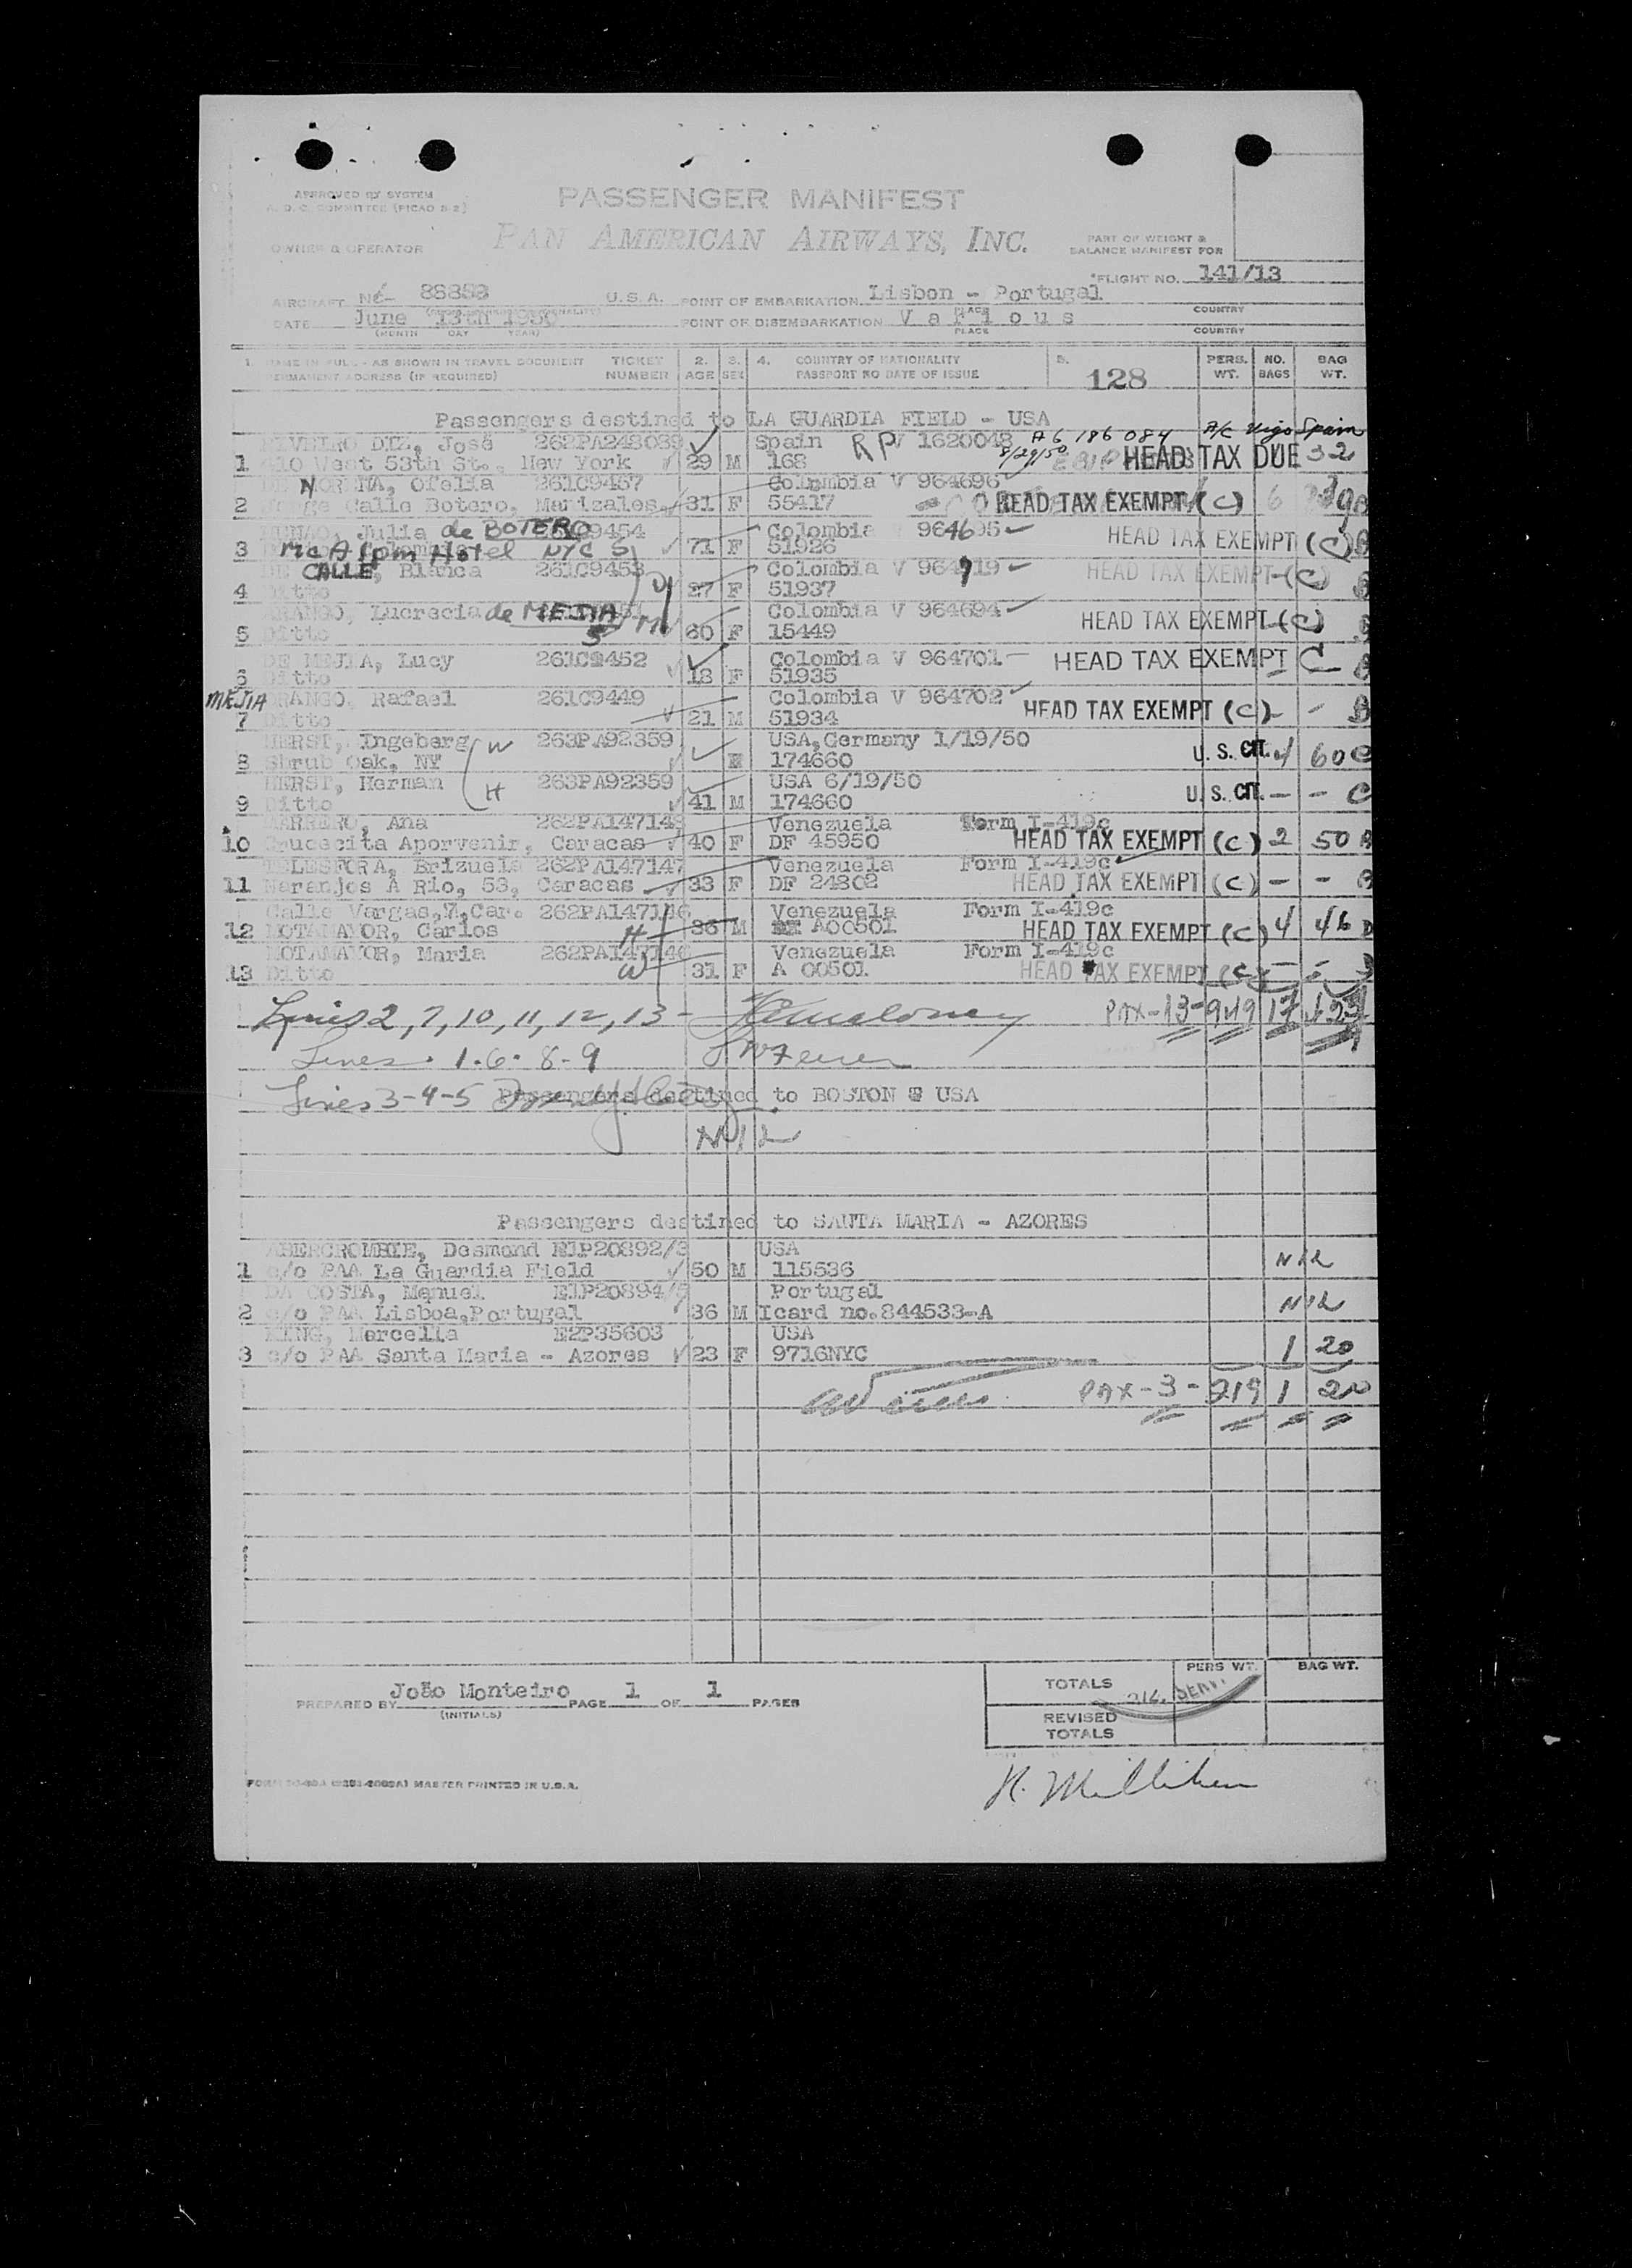 APPROVED BY SYSTEM
PASSENGER MANIFEST
PAN AMERICAN AIRWAYS, INC.
OWNER & OPERATOR
PART OF WEIGHT &
BALANCE MANIFEST FOR
*FLIGHT NO. 141/13
AIRCRAFT U.S.A. POINT OF EMBARKATION Lisbon - Portugal
PLACE COUNTRY
DATE June 13th 1950 POINT OF DISEMBARKATION V a r i o u s
(MONTH DAY YEAR) PLACE COUNTRY
1. NAME IN FULL - AS SHOWN IN TRAVEL DOCUMENT TICKET 2. 3. 4. COUNTRY OF NATIONALITY 5. PERS. NO. BAG
PERMANENT ADDRESS (IF REQUIRED) NUMBER AGE SEX PASSPORT NO DATE OF ISSUE 128 WT. BAGS WT.
Passengers destined to LA GUARDIA FIELD - USA
José 262PA248089 Spain R P V 1620048 A6 186 084 A/C Vigo Spain
1 410 West 53th St., New York 29 M 168 8/29/50 HEAD TAX DUE 32
Ofelia 261C9457 Colombia V 964696
2 Jorge Calle Botero, Manizales 31 F 55417 HEAD TAX EXEMPT (C) 6
Julia de BOTERO 9454 Colombia 964695
3 McAlpin Hotel NYC 71 F 51926 HEAD TAX EXEMPT (C) B
CALLE, Blanca 261C9453 Colombia V 964719
4 Ditto 27 F 51937 HEAD TAX EXEMPT (C) B
ARANGO, Lucrecia de MEJIA Colombia V 964694
5 Ditto 60 F 15449 HEAD TAX EXEMPT (C) B
DE MEJIA, Lucy 261C9452 Colombia V 964701
6 Ditto 18 F 51935 HEAD TAX EXEMPT C B
MEJIA ARANGO, Rafael 261C9449 Colombia V 964702
7 Ditto 21 M 51934 HEAD TAX EXEMPT (C) - - B
HERST, Ingeberg W 263PA92359 USA,Germany 1/19/50
8 Shrub Oak, NY 174660 U. S. CIT. 4 60 C
HERST, Herman H 263PA92359 USA 6/19/50
9 Ditto 41 M 174660 U. S. CIT. - - C
MARRERO, Ana 262PA147148 Venezuela Form I-419c
10 Crucecita Aporvenir, Caracas 40 F DF 45950 HEAD TAX EXEMPT (C) 2 50 B
TELESFORA, Brizuela 262PA147147 Venezuela Form I-419c
11 Naranjos A Rio, 53, Caracas 33 F DF 24802 HEAD TAX EXEMPT (C) - - B
Calle Vargas,7,Car. 262PA147146 Venezuela Form I-419c
12 MOTAMAYOR, Carlos H 36 M A00501 HEAD TAX EXEMPT (C) 4 46 B
MOTAMAYOR, Maria 262PA147146 Venezuela Form I-419c
13 Ditto W 31 F A 00501 HEAD TAX EXEMPT (C) - -
Lines 2, 7, 10, 11, 12, 13 - PAX-13-
Lines. 1. 6. 8-9
Lines 3-4-5 Passengers destined to BOSTON USA
Nil
Passengers destined to SANTA MARIA - AZORES
ABERCROMBIE, Desmond E1P20892/3 USA
1 c/o PAA La Guardia Field 50 M 115536 Nil
DA COSTA, Manuel E1P20894/5 Portugal
2 c/o PAA Lisboa,Portugal 36 M Icard no.844533-A Nil
KING, Marcella E2P35603 USA
3 c/o PAA Santa Maria - Azores 23 F 9716NYC 1 20
PAX-3- 219 1 20
PERS WT. BAG WT.
TOTALS
PREPARED BY João Monteiro PAGE 1 OF 1 PAGES
(INITIALS)
REVISED
TOTALS
MASTER PRINTED IN U.S.A.